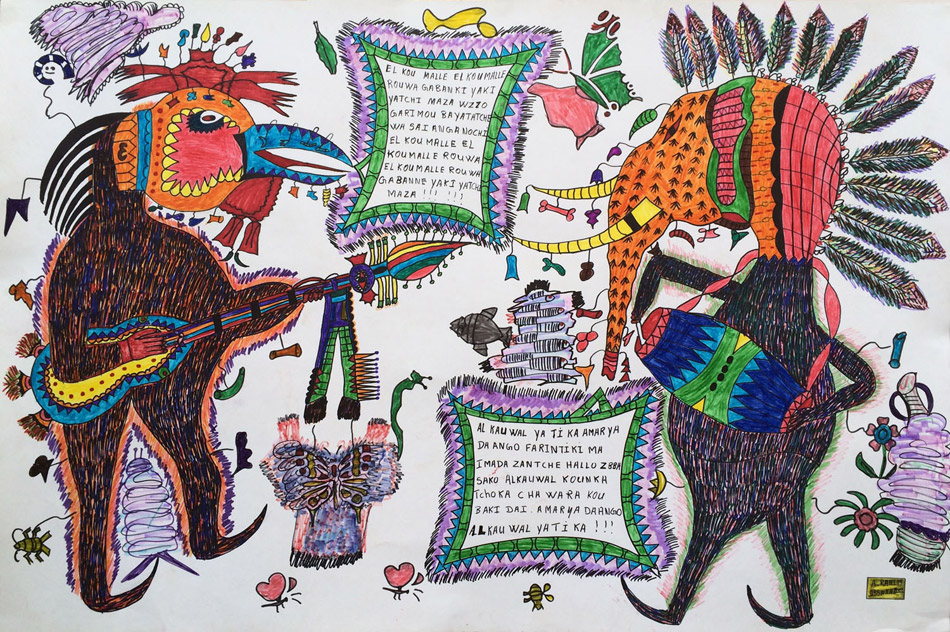 EL KOU MALLE EL KOU MALLE
ROUWA GABANKI YAKI
YATCHI MAZA WZIO
GARIMOU BAYATATCHE
WA SAI ANGANOCHI
EL KOUMALLE EL
KOUMALLE ROUWA
EL KOUMALLE ROUWA
GABANNE YAKI YATCHI
MAZA !!! !!!
AL KAU WAL YA TI KA AMAR YA
DA ANGO FARINTIKI MA
IMADA ZANTCHE HALLO ZBBA
SAKO ALKAUWAL KOUNKA
TCHOKA CHA WARA KOU
BAKI DAI. AMARYA DAANGO
ALKAU WAL YATIKA !!!